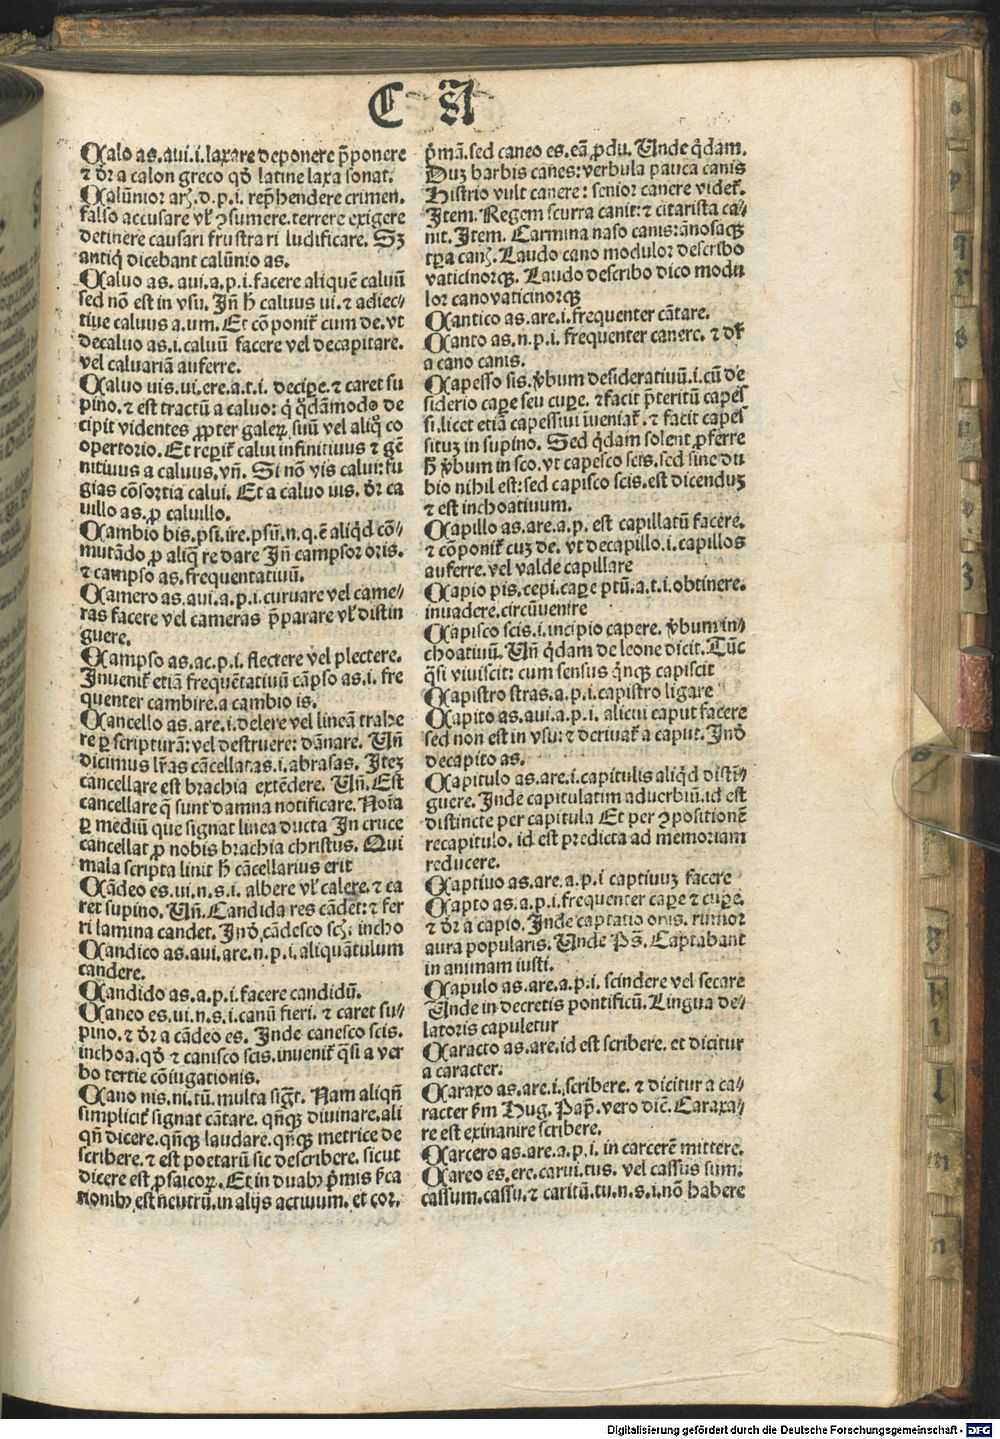 C A
Calo as.aui.i.laxare deponere p̄ponere
⁊ dr̄ a calon greco qd̓ latine laxa sonat.
Calūnior arꝭ.d.p.i. rep̄hendere crimen.
falso accusare vl̓ ꝯsumere.terrere exigere
detinere causari frustra ri ludificare. Sꝫ
antiq̓ dicebant calūnio as.
Caluo as. aui.a.p.i.facere aliquē caluū
sed nō est in vsu. Jn̄ h̄ caluus ui.⁊ adiec-
tiue caluus a.um. Et cōponit̄ cum de.vt
decaluo as.i.caluū facere vel decapitare.
vel caluariā auferre.
Caluo uis.ui.ere.a.t.i. decipe̱.⁊ caret su
pino.⁊ est tractū a caluo: q̓ q̄dāmodo de
cipit videntes ꝓpter galeꝝ suū vel aliq̓ co
opertorio. Et repit̄ calui infinitiuus ⁊ gē
nitiuus a caluus.vn̄. Si nō vis calui:fu
gias cōsortia calui. Et a caluo uis. dr̄ ca
uillo as.ꝓ caluillo.
Cambio bis.psi.ire.psū.n.q.ē aliq̓d cō-
mutādo ꝓ aliq̄ re dare Jn̄ campsor oris.
⁊ campso as.frequentatiuū.
Camero as.aui.a.p.i.curuare vel came-
ras facere vel cameras p̄parare vl̓ distin
guere.
Campso as.ac.p.i. flectere vel plectere.
Jnuenit̄ etiā frequētatiuū cāpso as.i. fre
quenter cambire.a cambio is.
Cancello as.are.i.delere vel lineā trahe
re ꝑ scripturā: vel destruere: dānare. Vn̄
dicimus lr̄as cācellatas.i.abrasas. Jteꝫ
cancellare est brachia extēdere. Vn̄. Est
cancellare q̄ sunt damna notificare. Noīa
ꝑ mediū que signat linea ducta Jn cruce
cancellat ꝓ nobis brachia christus. Qui
mala scripta linit h̄ cācellarius erit
Cādeo es.ui.n.s.i. albere vl̓ calere.⁊ ca
ret supino. Vn̄. Candida res cādet:⁊ fer
ri lamina candet. Jnd̓.cādesco scꝭ. incho
Candico as.aui.are.n.p.i.aliquātulum
candere.
Candido as.a.p.i.facere candidū.
Caneo es.ui.n.s.i.canū fieri. ⁊ caret su-
pino.⁊ dr̄ a cādeo es. Jnde canesco scis.
inchoa.qd̓ ⁊ canisco scis.inuenit̄ q̄si a ver
bo tertie cōiugationis.
Cano nis.ni.tū.multa sigt̄. Nam aliqn̄
simplicit̄ signat cātare. qn̄qꝫ diuinare.ali
qn̄ dicere.qn̄qꝫ laudare.qn̄qꝫ metrice de
scribere.⁊ est poetarū sic describere. sicut
dicere est ꝓsaicoꝝ. Et in duabꝰ p̓mis sc̓a
tionibꝰ est neutrū.in alijs actiuum. et cor.
p̓mā.sed caneo es.eā ꝓdu. Vnde q̓dam.
Duꝫ barbis canes: verbula pauca canis
Histrio vult canere: senior canere videt̄.
Jtem. Regem scurra canit:⁊ citarista ca-
nit. Jtem. Carmina naso canis:ānosaqꝫ
tꝑa canꝭ. Laudo cano modulor describo
vaticinorqꝫ. Laudo describo dico modu
lor canovaticinorqꝫ
Cantico as.are.i.frequenter cātare.
Canto as.n.p.i. frequenter canere. ⁊ dr̄
a cano canis.
Capesso sis.v̓bum desideratiuū.i.cū de
siderio cape̱ seu cupe̱. ⁊ facit p̄teritū capes
si.licet etiā capessiui īueniat̄.⁊ facit capes
situꝫ in supino. Sed q̓dam solent ꝓferre
h̄ v̓bum in sco.vt capesco scis.sed sine du
bio nihil est: sed capisco scis.est dicenduꝫ
⁊ est inchoatiuum.
Capillo as.are.a.p. est capillatū facere.
⁊ cōponit̄ cuꝫ de. vt decapillo.i.capillos
auferre.vel valde capillare
Capio pis.cepi.cape̱ ptū.a.t.i.obtinere.
inuadere.circūuenire
Capisco scis.i.incipio capere. v̓bum in-
choatiuū. Vn̄ q̓dam de leone dicit. Tūc
q̄si viuiscit: cum sensus q̓nqꝫ capiscit
Capistro stras.a.p.i.capistro ligare
Capito as.aui.a.p.i. alicui caput facere
sed non est in vsu:⁊ deriuat̄ a caput. Jnd̓
decapito as.
Capitulo as.are.i.capitulis aliq̓d distī-
guere. Jnde capitulatim aduerbiū.id est
distincte per capitula Et per ꝯpositionē
recapitulo. id est predicta ad memoriam
reducere.
Captiuo as.are.a.p.i captiuuꝫ facere
Capto as.a.p.i.frequenter cape̱ ⁊ cupe̱.
⁊ dr̄ a capio. Jnde captatio onis. rumor
aura popularis. Vnde Ps̄. Captabant
in animam iusti.
Capulo as.are.a.p.i. scindere vel secare
Vnde in decretis pontificū. Lingua de-
latoris capuletur
Caracto as.are.id est scribere. et dicitur
a caracter.
Caraxo as.are.i.scribere. ⁊ dicitur a ca-
racter s̄m Hug. Pap̄. vero dic̄. Caraxa-
re est exinanire scribere.
Carcero as.are.a.p.i. in carcerē mittere.
Careo es.ere.carui.tus. vel cassus sum.
cassum.cassu.⁊ caritū.tu.n.s.i.nō habere
Digitalisierung gefördert durch die Deutsche Forschungsgemeinschaft - DFG